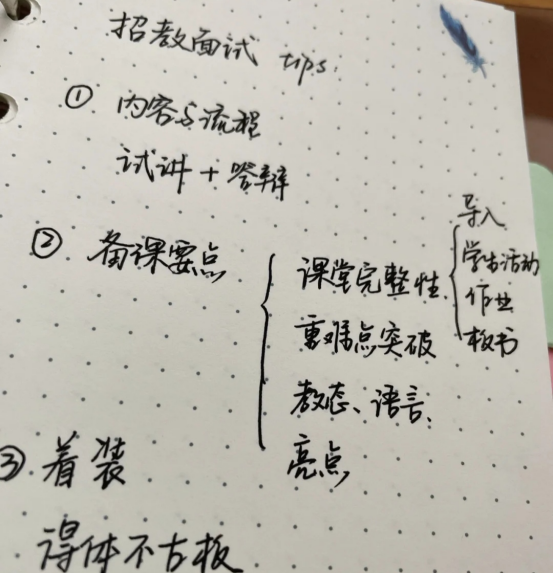 招教面试 tips
① 内容与流程
试讲+答辩
② 备课要点
课堂完整性
导入
学生活动
作业
板书
重难点突破
教态、语言、
亮点
③ 着装
得体不古板